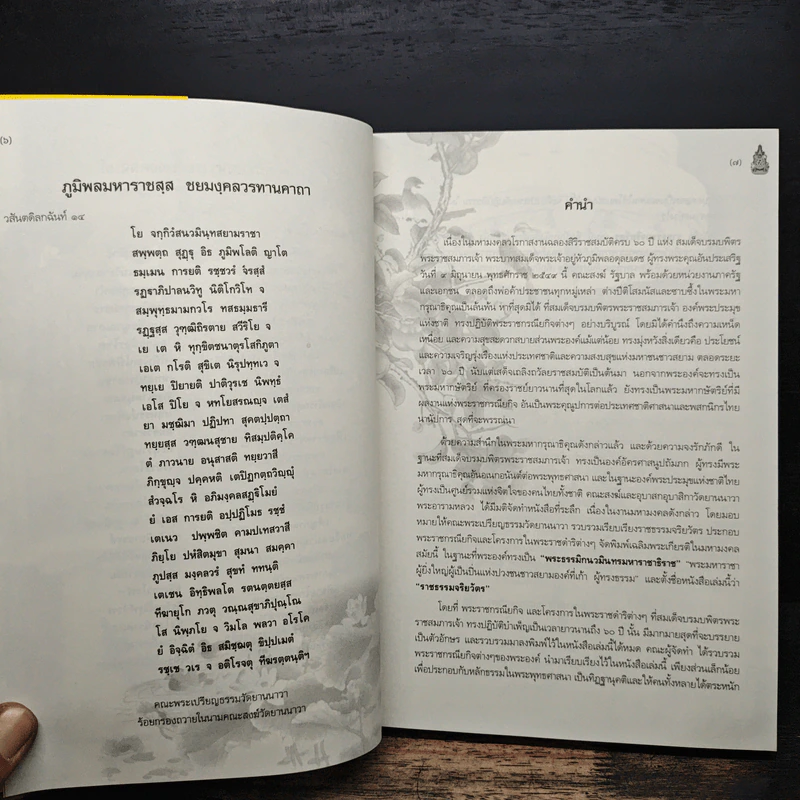 (๖)
ภูมิพลมหาราชสฺส ชยมงฺคลวรทานคาถา
วสันตดิลกฉันท์ ๑๔
โย จกฺกิวํสนวมินฺทสยามราชา
สพฺพตฺถ สุฏฺฐุ อิธ ภูมิพโลติ ญาโต
ธมฺเมน การยติ รชฺชวรํ จิรสฺสํ
รฏฺฐาภิปาลนวิทู นิติโกวิโท จ
สมฺพุทฺธมามกวโร ทสธมฺมธารี
รฏฺฐสฺส วุฑฺฒิถิรตาย สวีริโย จ
เย เต หิ ทุกฺขิตชนาตุรโสกิภูตา
เอเต กโรติ สุขิเต นิรุปทฺทเว จ
ทยฺเย ปิยายติ ปาติวุรเช นิพทฺธํ
เอโส ปิโย จ หทโยสรณญฺจ เตสํ
ยา มชฺฌิมา ปฏิปทา สุคตปฺปตฺถา
ทยฺยสฺส วฑฺฒนสุชาย ทิสมฺปติคฺโค
ตํ ภาวนาย อนุสาสติ ทยฺยวาสี
ภิกฺขุญฺจ ปคฺคหติ เตปิฏกตฺถวิญฺญุํ
สํวจฺฉโร หิ อภิมงฺคลสฏฺฐิโมยํ
ยํ เอส การยติ อปฺปฏิโมธ รชฺชํ
เตเนว ปพฺพชิต คามปเทสวาสี
ภิยฺโย ปหํสิตมุขา สุมนา สมคฺคา
ภูปสฺส มงฺคลวรํ สุขทํ ททนฺติ
เตเชน อิทฺธิพลโต รตนตฺตยสฺส
ทีฆายุโก ภวตุ วณฺณสุขาภิปุณฺโณ
โส นิพฺภโย จ วิมโล พลวา อโรโค
ยํ อิจฺฉิตํ อิธ สมิชฺฌตุ ขิปฺปเมตํ
รชฺเช วเร จ อติโรจตุ ทีฆรตฺตนฺติฯ
คณะพระเปรียญธรรมวัดยานนาวา
ร้อยกรองถวายในนามคณะสงฆ์วัดยานนาวา
(๗)
คำนำ
เนื่องในมหามงคลวโรกาสงานฉลองสิริราชสมบัติครบ ๖๐ ปี แห่ง สมเด็จบรมบพิตร
พระราชสมภารเจ้า พระบาทสมเด็จพระเจ้าอยู่หัวภูมิพลอดุลยเดช ผู้ทรงพระคุณอันประเสริฐ
วันที่ ๙ มิถุนายน พุทธศักราช ๒๕๔๙ นี้ คณะสงฆ์ รัฐบาล พร้อมด้วยหน่วยงานภาครัฐ
และเอกชน ตลอดถึงพ่อค้าประชาชนทุกหมู่เหล่า ต่างปีติโสมนัสและซาบซึ้งในพระมหา
กรุณาธิคุณเป็นล้นพ้น หาที่สุดมิได้ ที่สมเด็จบรมบพิตรพระราชสมภารเจ้า องค์พระประมุข
แห่งชาติ ทรงปฏิบัติพระราชกรณียกิจต่างๆ อย่างบริบูรณ์ โดยมิได้คำนึงถึงความเหน็ด
เหนื่อย และความสุขสะดวกสบายส่วนพระองค์แม้แต่น้อย ทรงมุ่งหวังสิ่งเดียวคือ ประโยชน์
และความเจริญรุ่งเรืองแห่งประเทศชาติและความสงบสุขแห่งมหาชนชาวสยาม ตลอดระยะ
เวลา ๖๐ ปี นับแต่เสด็จเถลิงถวัลยราชสมบัติเป็นต้นมา นอกจากพระองค์จะทรงเป็น
พระมหากษัตริย์ ที่ครองราชย์ยาวนานที่สุดในโลกแล้ว ยังทรงเป็นพระมหากษัตริย์ที่มี
ผลงานแห่งพระราชกรณียกิจ อันเป็นพระคุณูปการต่อประเทศชาติศาสนาและพสกนิกรไทย
นานัปการ สุดที่จะพรรณนา
ด้วยความสำนึกในพระมหากรุณาธิคุณดังกล่าวแล้ว และด้วยความจงรักภักดี ใน
ฐานะที่สมเด็จบรมบพิตรพระราชสมภารเจ้า ทรงเป็นองค์อัครศาสนูปถัมภก ผู้ทรงมีพระ
มหากรุณาธิคุณอันอเนกอนันต์ต่อพระพุทธศาสนา และในฐานะองค์พระประมุขแห่งชาติไทย
ผู้ทรงเป็นศูนย์รวมแห่งจิตใจของคนไทยทั้งชาติ คณะสงฆ์และอุบาสกอุบาสิกาวัดยานนาวา
พระอารามหลวง ได้มีมติจัดทำหนังสือที่ระลึก เนื่องในงานมหามงคลดังกล่าว โดยมอบ
หมายให้คณะพระเปรียญธรรมวัดยานนาวา รวบรวมเรียบเรียงราชธรรมจริยวัตร ประกอบ
พระราชกรณียกิจและโครงการในพระราชดำริต่างๆ จัดพิมพ์เฉลิมพระเกียรติในมหามงคล
สมัยนี้ ในฐานะที่พระองค์ทรงเป็น "พระธรรมิกนวมินทรมหาราชาธิราช" "พระมหาราชา
ผู้ยิ่งใหญ่ผู้เป็นปิ่นแห่งปวงชนชาวสยามองค์ที่เก้า ผู้ทรงธรรม" และตั้งชื่อหนังสือเล่มนี้ว่า
"ราชธรรมจริยวัตร"
โดยที่ พระราชกรณียกิจ และโครงการในพระราชดำริต่างๆ ที่สมเด็จบรมบพิตรพระ
ราชสมภารเจ้า ทรงปฏิบัติบำเพ็ญเป็นเวลายาวนานถึง ๖๐ ปี นั้น มีมากมายสุดที่จะบรรยาย
เป็นตัวอักษร และรวบรวมมาลงพิมพ์ไว้ในหนังสือเล่มนี้ได้หมด คณะผู้จัดทำ ได้รวบรวม
พระราชกรณียกิจต่างๆของพระองค์ นำมาเรียบเรียงไว้ในหนังสือเล่มนี้ เพียงส่วนเล็กน้อย
เพื่อประกอบกับหลักธรรมในพระพุทธศาสนา เป็นทิฏฐานุคติและให้คนทั้งหลายได้ตระหนัก